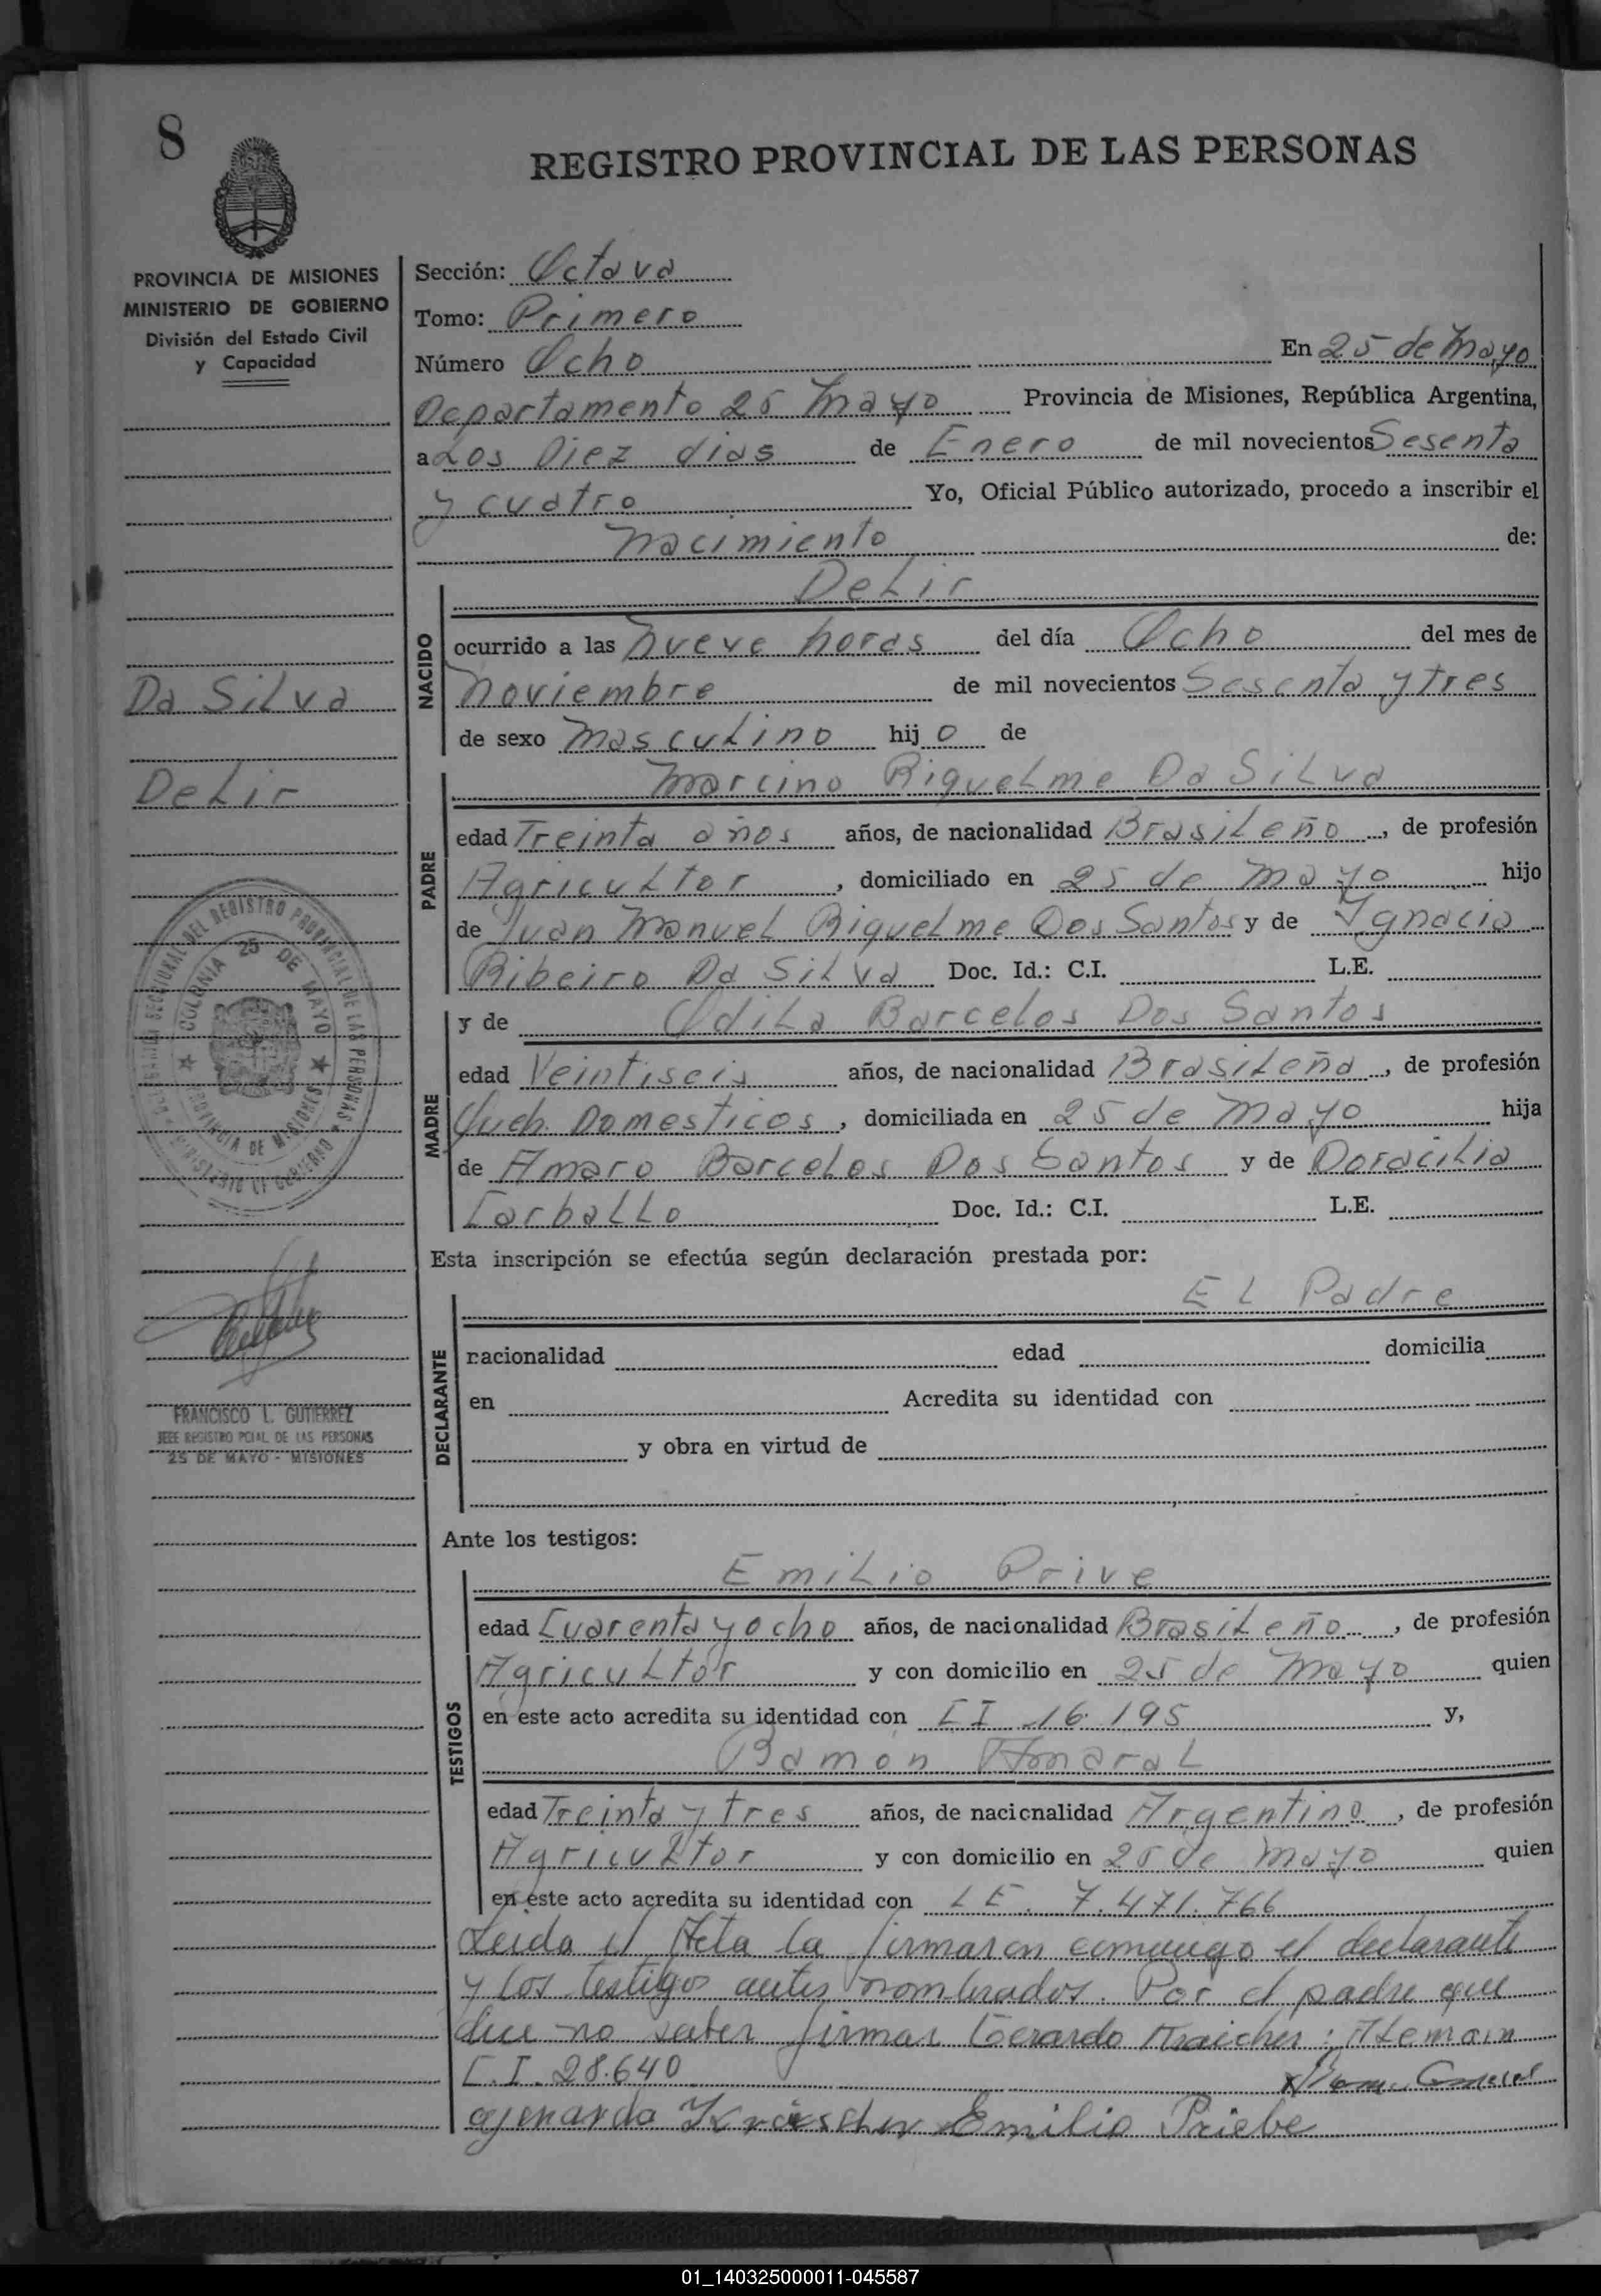 8
REGISTRO PROVINCIAL DE LAS PERSONAS
PROVINCIA DE MISIONES
MINISTERIO DE GOBIERNO
División del Estado Civil
y Capacidad
Sección: Octava
Tomo: Primero
Número Ocho En 25 de Mayo
Departamento 25 Mayo Provincia de Misiones, República Argentina,
a Los Diez dias de Enero de mil novecientos Sesenta
y cuatro Yo, Oficial Público autorizado, procedo a inscribir el
Nacimiento de:
Delir
NACIDO
ocurrido a las Nueve horas del día Ocho del mes de
Noviembre de mil novecientos Sesenta y tres
de sexo Masculino hijo de
Da Silva
Delir
Marcino Riquelme Da Silva
PADRE
edad Treinta años años, de nacionalidad Brasileño, de profesión
Agricultor, domiciliado en 25 de Mayo hijo
de Juan Manuel Riquelme Dos Santos y de Ygnacia
Ribeiro Da Silva Doc. Id.: C.I. L.E.
MADRE
y de Odila Barcelos Dos Santos
edad Veintiseis años, de nacionalidad Brasileña, de profesión
Queh. Domesticos, domiciliada en 25 de Mayo hija
de Amaro Barcelos Dos Santos y de Doracilia
Carballo Doc. Id.: C.I. L.E.
COLONIA 25 DE MAYO
PROVINCIA DE MISIONES
FRANCISCO L. GUTIERREZ
JEFE REGISTRO PCIAL DE LAS PERSONAS
25 DE MAYO - MISIONES
Esta inscripción se efectúa según declaración prestada por:
El Padre
DECLARANTE
nacionalidad edad domicilia
en Acredita su identidad con
y obra en virtud de
Ante los testigos:
Emilio Prive
TESTIGOS
edad Cuarenta y ocho años, de nacionalidad Brasileño, de profesión
Agricultor y con domicilio en 25 de Mayo quien
en este acto acredita su identidad con C I 16.195 y,
Ramon Amaral
edad Treinta y tres años, de nacionalidad Argentino, de profesión
Agricultor y con domicilio en 25 de Mayo quien
en este acto acredita su identidad con L E. 7.471.766
Leida el Acta la firmaron conmigo el declarante
y los testigos antes nombrados. Por el padre que
dice no saber firmar Gerardo Kraicher: Aleman
C.I. 28.640
Emilio Priebe
01_140325000011-045587